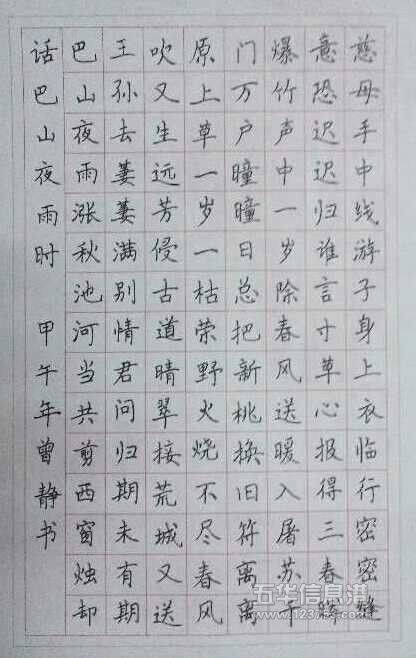 慈母手中线游子身上衣临行密密缝
意恐迟迟归谁言寸草心报得三春晖
爆竹声中一岁除春风送暖入屠苏千
门万户曈曈日总把新桃换旧符离离
原上草一岁一枯荣野火烧不尽春风
吹又生远芳侵古道晴翠接荒城又送
王孙去萋萋满别情君问归期未有期
巴山夜雨涨秋池河当共剪西窗烛却
话巴山夜雨时 甲午年曾静书
五华信息港